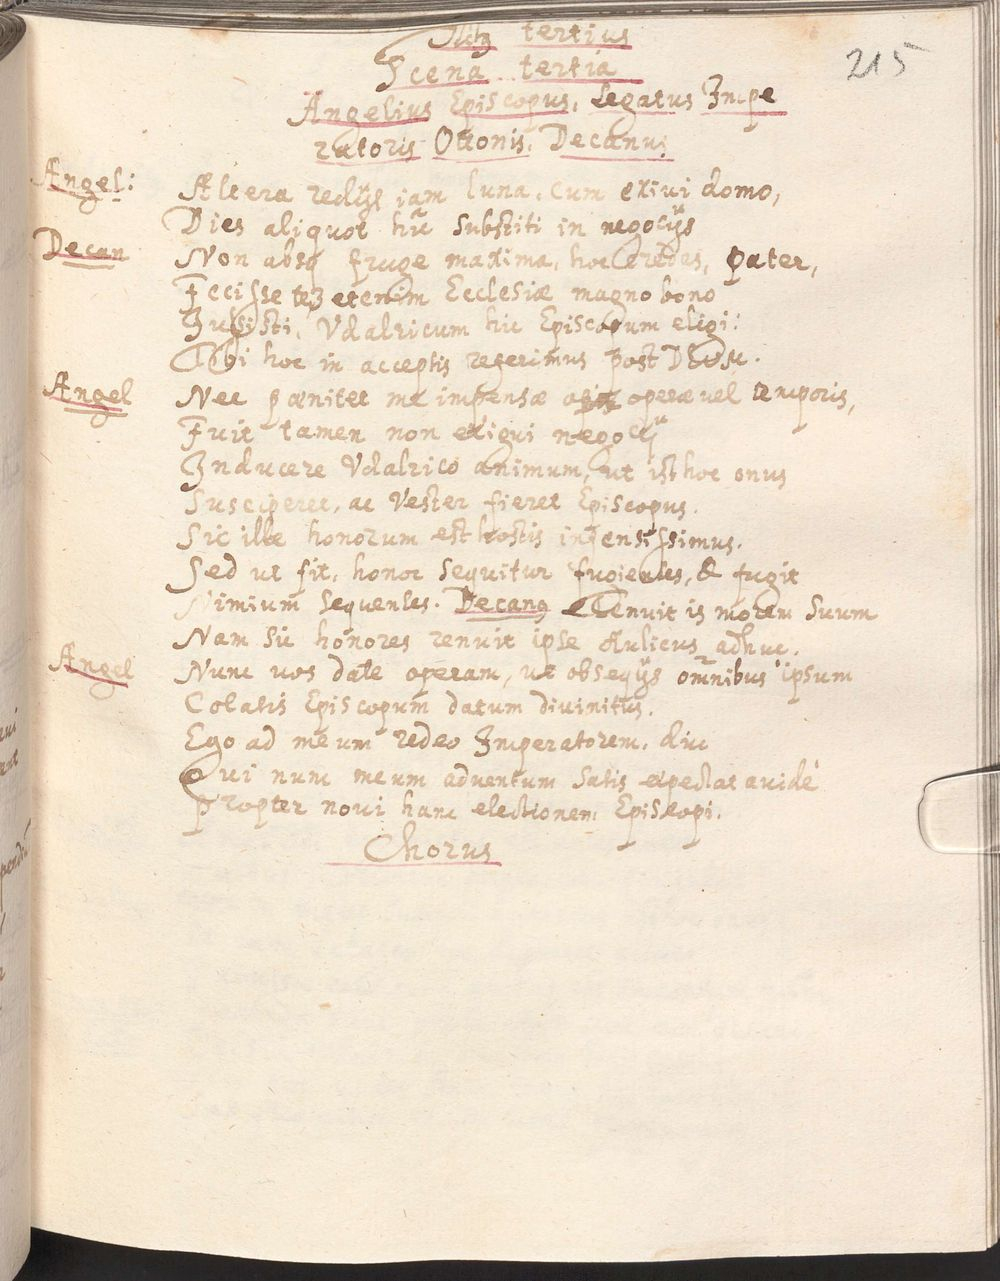 Actus tertius
Scena tertia
215
Angelius Episcopus, Legatus Impe
ratoris Ottonis, Decanus
Angel: Altera redijt iam luna, cum exivi domo,
Dies aliquot hic substiti in negocijs
Decan Non absq fruge maxima, hoc credas, pater,
Fecisse te, etenim Ecclesiæ magno bono
Iussisti, Vdalricum hic Episcopum eligi:
Tibi hoc in acceptis regerimus post Deum.
Angel Nec pœnitet me impensæ operæ vel temporis,
Fuit tamen non exigui negocij
Inducere Vdalrico animum, ut isthoc onus
Susciperet, ac Vester fieret Episcopus.
Sic ille honorum est hostis infensissimus.
Sed ut fit, honor sequitur fugientes, & fugit
Nimium sequentes. Decang Tenuit is morem suum
Nam sic honores renuit ipse Aulicus adhuc.
Angel Nunc vos date operam, ut obsequijs omnibus ipsum
Colatis Episcopum datum divinitus.
Ego ad meum redeo Imperatorem, diu
Qui nunc meum adventum satis expectat avidè
Propter novi hanc electionem Episcopi.
Chorus